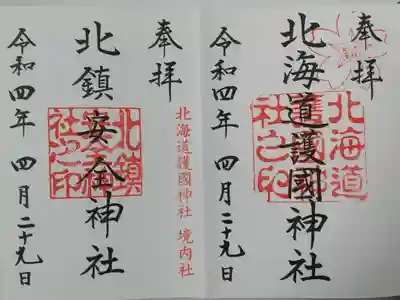 奉拝
北海道護國神社
北海道
護國神
社之印
令和四年 四月二十九日
北海道護國神社 境内社
奉拝
北鎮安全神社
北鎮
安全神
社之印
令和四年 四月二十九日